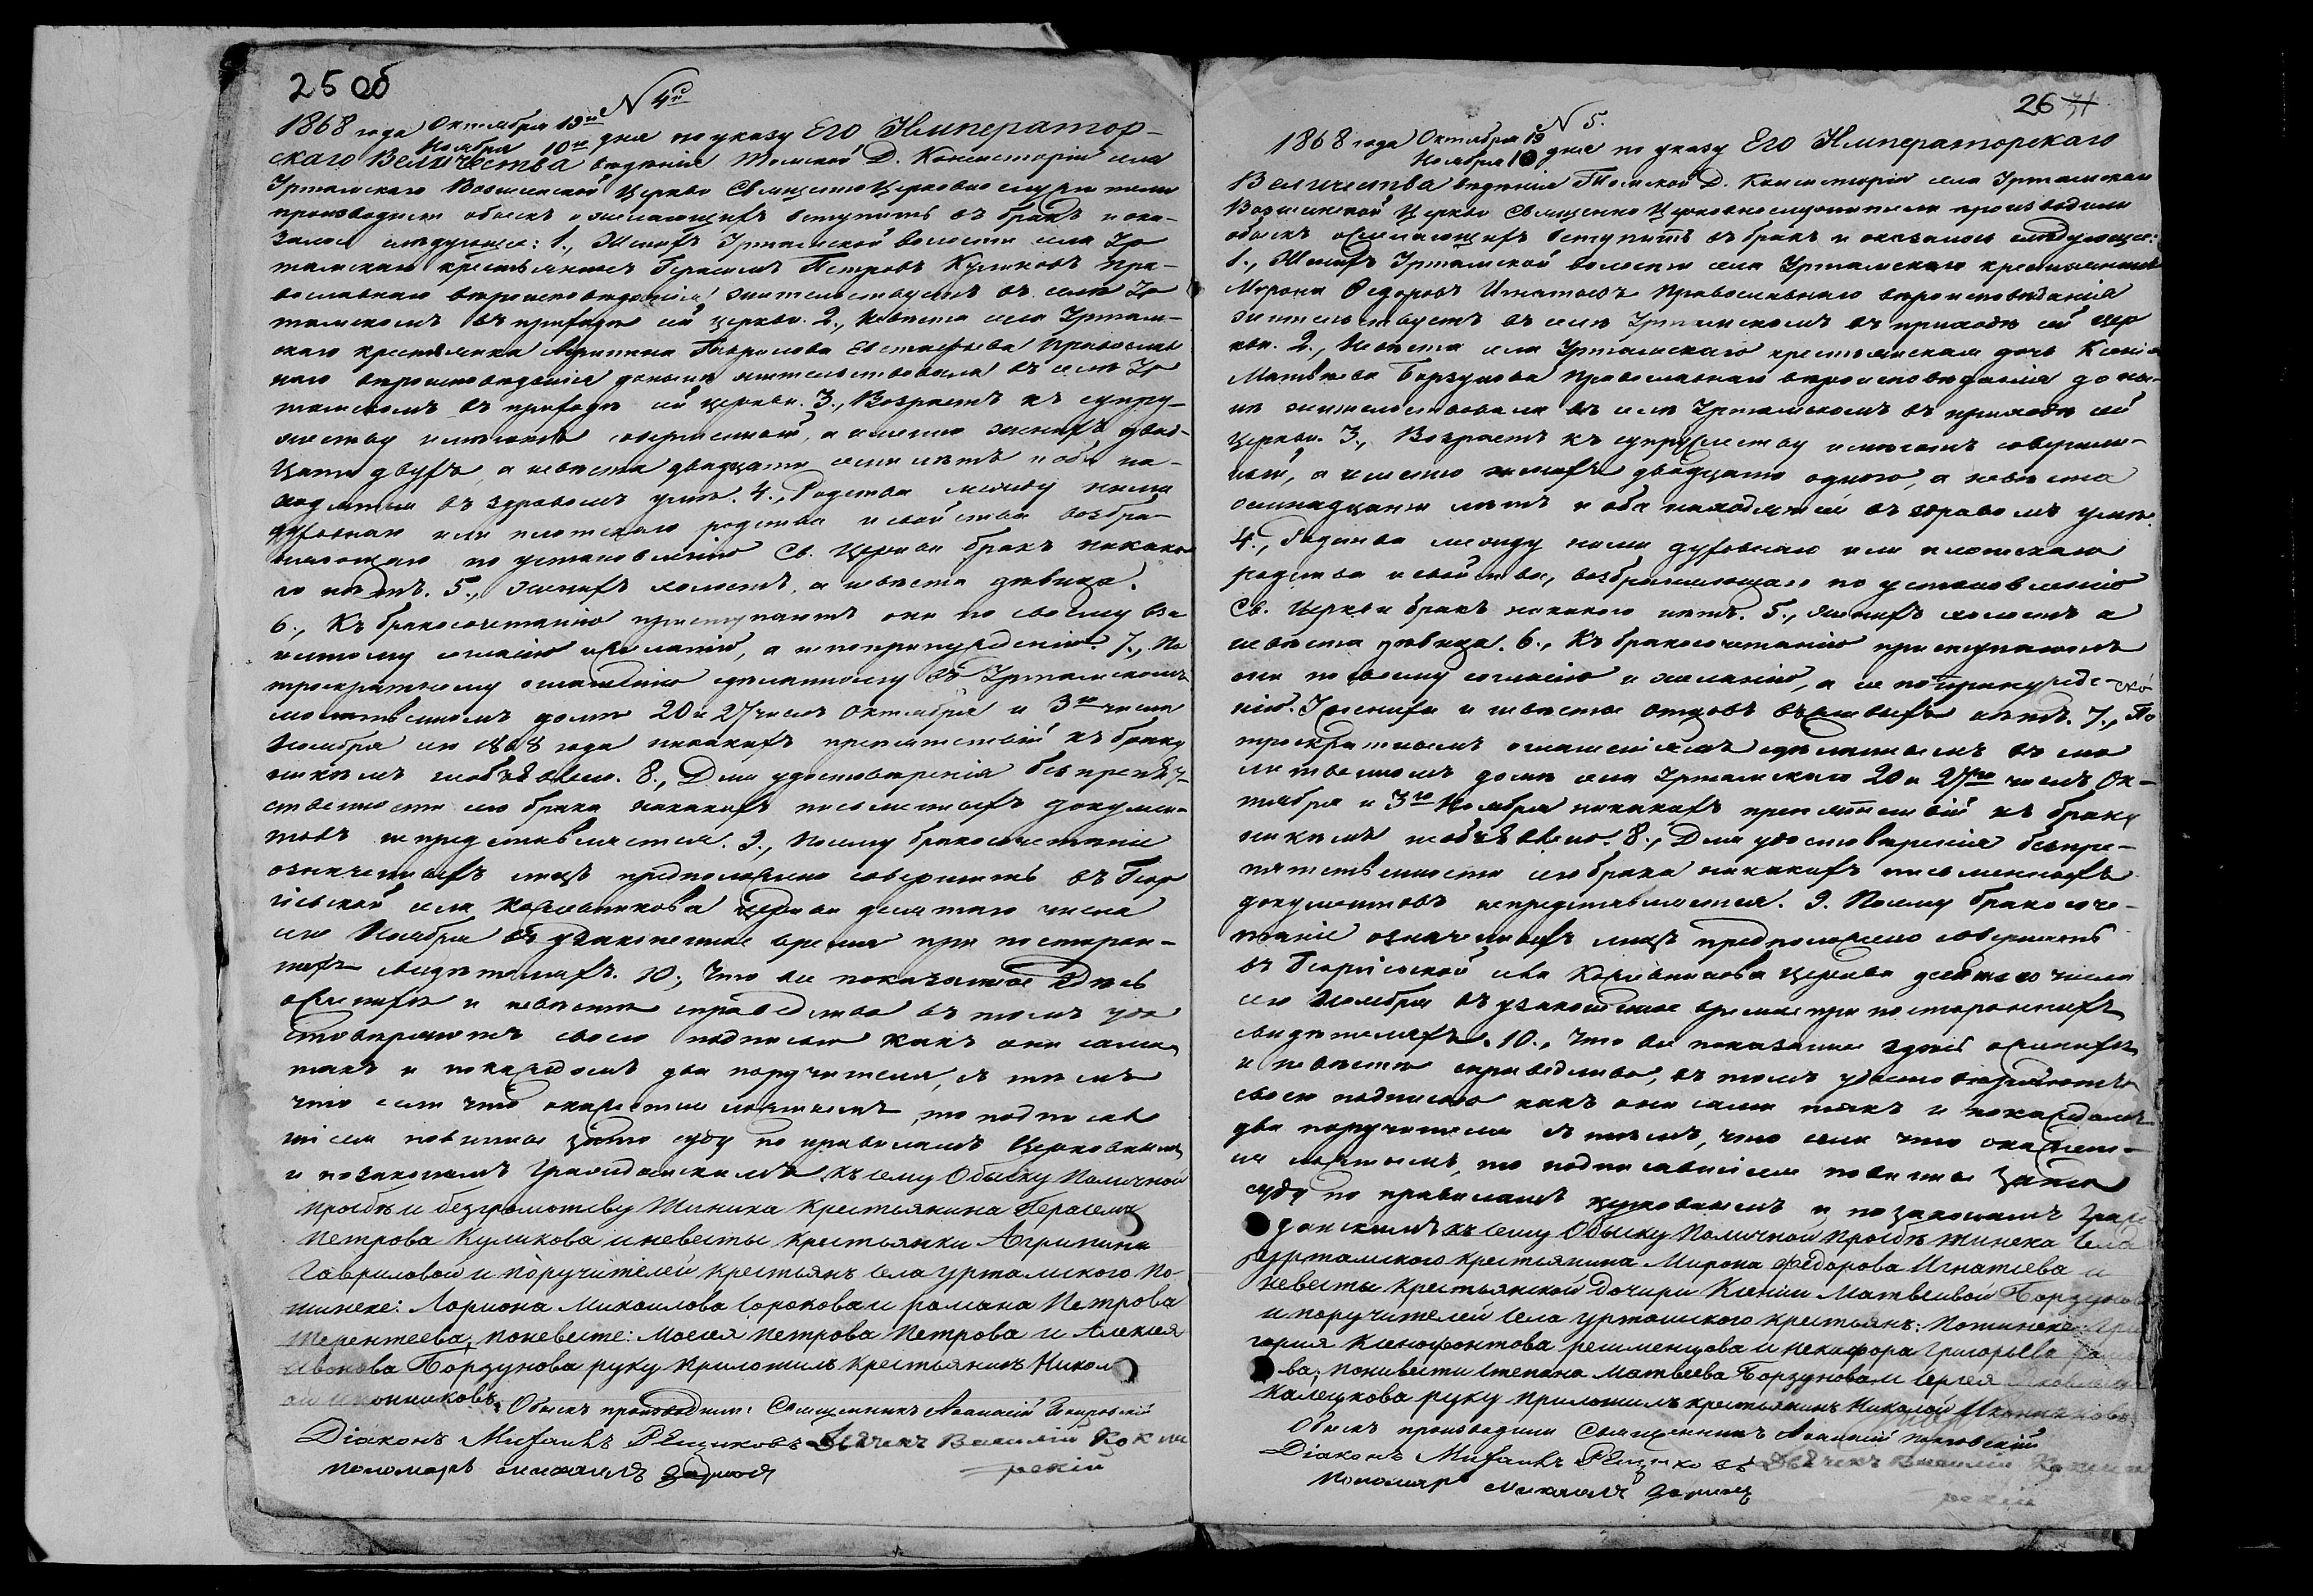 25 об
N 4й
1868 года Октября 19го
Ноября 10го дня по указу Его Император-
скаго Величества веденія Томской Д. Консисторіи села
Уртамскаго Вознесенской Церкви Священно Церковно служители
производили обыскъ о желающихъ вступить въ бракъ и ока-
залось следующее: 1., Женихъ Уртамской волости села Ур
тамскаго крестьянинъ Герасимъ Петровъ Куликовъ пра-
вославнаго вероисповеданія жительствуетъ въ селе Ур
тамскомъ въ приходе сей церкви. 2., Невеста села Уртам-
скаго крестьянка Агрипина Гаврилова Евстафьева Православ
наго вероисповеданія доныне жительствовала въ селе Ур
тамскомъ въ приходе сей церкви. 3., Возрастъ къ супру-
жеству имеютъ совершенный, а именно женихъ двад-
цати двухъ, а невеста двадцати семи летъ и оба на-
ходятся въ здравомъ уме. 4., Родства между ними
духовнаго или плотскаго родства и свойства возбра-
няющаго по установленію Св. Церкви бракъ никако
го нетъ. 5., Женихъ холостъ, а невеста девица.
6., Къ бракосочетанію приступаютъ они по своему вза
имному согласію и желанію, а не по принужденію. 7., По
троекратному оглашенію сделанному въ Уртамскомъ
молитвенномъ доме 20 и 27 чиселъ Октября и 3го числа
Ноября сего 1868 года никакихъ препятствій къ браку
никемъ необъявлено. 8., Для удостоверенія безпрепят-
ственности сего брака никакихъ письменныхъ докумен-
товъ непредставляется. 9., Посему бракосочетаніе
означенныхъ лицъ предположено совершить въ Геор
гіевской села Кожевникова церкви десятаго числа
сего Ноября въ узаконенное время при посторон-
нихъ свидетеляхъ. 10., Что все показанное здесь
о женихе и невесте справедливо въ томъ удо
стоверяютъ своею подписью какъ они сами,
такъ и по каждомъ два поручителя, съ темъ
что если что окажется ложнымъ, то подписав
шіеся повинны за то суду по правиламъ Церковнымъ
и по законамъ гражданскимъ. къ сему Обыску Поличной
прозбѣ и безграмотсву Жиниха Крестьянина Герасема
Петрова Куликова и невесты крестьянки Агрипины
Гавриловой и поручителей крестьянъ села уртамского По-
жинехе: Лариона Михаилова Сорокова и романа Петрова
Терентеева, поневесте: Мосея Петрова Петрова и Алексея
Ивонова Борзунова руку приложилъ крестьянинъ Никол
Обыскъ производили: Священникъ Афанасій Покровскій
Діаконъ Михаилъ Рещиковъ Дьячекъ Василій Кокши
рскій
пономарь михаилъ

26
N 5.
1868 года Октября 19
Ноября 10 дня по указу Его Императорскаго
Величества веденія Томской Д. Консисторіи села Уртамскаго
Вознесенской Церкви Священно Церковнослужители производили
обыскъ о желающихъ вступить въ бракъ и оказалось следующее:
1., Женихъ Уртамской волости села Уртамскаго крестьянинъ
Миронъ Федоровъ Игнатьевъ Православнаго вероисповеданія
жительствуетъ въ селе Уртамскомъ въ приходе сей цер
кви. 2., Невеста села Уртамскаго крестьянская дочь Ксенія
Матвеева Борзунова Православнаго вероисповеданія доны-
не жительствовала въ селе Уртамскомъ въ приходе сей
Церкви. 3., Возрастъ къ супружеству имеютъ совершен-
ный, а именно женихъ двадцати одного, а невеста
осмнадцати летъ и оба находятся въ здравомъ уме.
4., Родства между ними духовнаго или плотскаго
родства и свойства, возбраняющаго по установленію
Св. Церкви бракъ никакого нетъ. 5., Женихъ холостъ а
невеста девица. 6., Къ бракосочетанію приступаютъ
они по своему согласію и желанію, а не по принужде-
нію. У жениха и невесты отцовъ въ живыхъ нетъ. 7., По
троекратнымъ оглашеніямъ сделаннымъ въ мо
литвенномъ доме села Уртамскаго 20 и 27го числъ Ок-
тября и 3го Ноября никакихъ препятствій къ браку
никемъ необъявлено. 8., Для удостоверенія безпре-
пятственности сего брака никакихъ письменныхъ
документовъ непредставляется. 9. Посему бракосоче-
таніе означенныхъ лицъ предположено совершить
въ Георгіевской села Кожевникова церкви десятаго числа
сего Ноября въ узаконенное время при постороннихъ
свидетеляхъ. 10., Что все показанное здесь о женихе
и невесте справедливо, въ томъ удостоверяютъ
своею подписью какъ они сами такъ и по каждомъ
два поручителя съ темъ, что если что окажет-
ся ложнымъ, то подписавшіеся повинны за то
суду по правиламъ церковнымъ и по законамъ граж
данскимъ. къ сему Обыску Поличной прозбѣ жинеха села
уртамского крестьянина Мирона Федорова Игнатьева и
невесты крестьянской Дочири Ксении Матвеивой Борзунов
и поручителей села уртамского крестьянъ: Пожинехе Гри
гория Ксенофонтова решменцова и Никифора Григорьева
ва, поневести Степана Матвеева Борзунова и Сергея Яковлева
Калецкова руку приложилъ крестьянинъ Николай Иконниковъ
Обыскъ производили Священникъ Афанасій Покровскій
Діаконъ Михаилъ Рещиковъ Дьячекъ Василій Кокши
рскій
Пономарь михаилъ